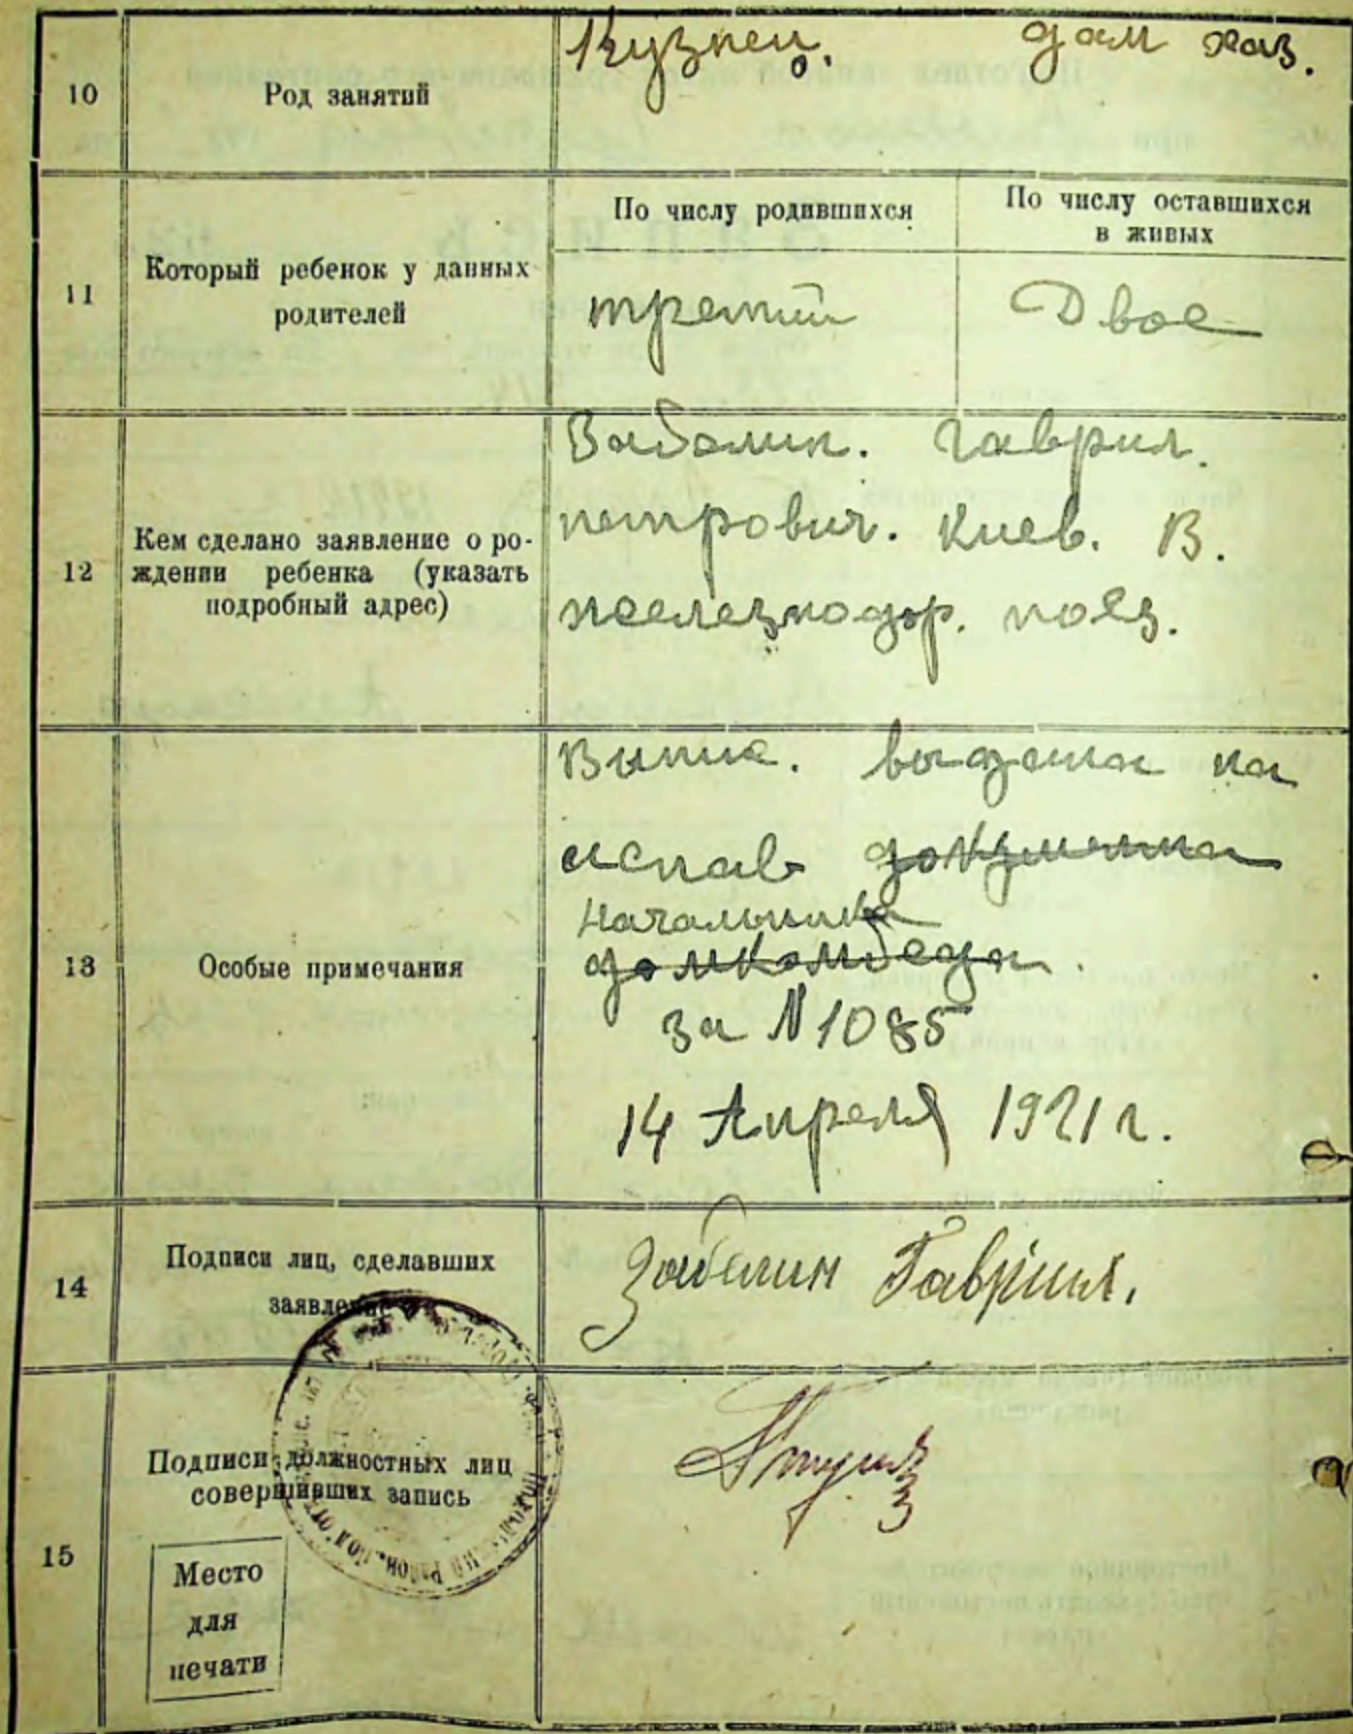 10
Род занятий
Кузнец. дом хоз.
11
Который ребенок у данных
родителей
По числу родившихся
По числу оставшихся
в живых
третий
Двое
12
Кем сделано заявление о ро-
ждении ребенка (указать
подробный адрес)
Заболин. Гаврил.
петрович. Киев. В.
железнодор. поез.
13
Особые примечания
Выпис. выдана на
основ документа
Начальника
домкомбеда.
за № 1085
14 Апреля 1921 г.
14
Подписи лиц, сделавших
заявление
Заболин Гавриил.
15
Подписи должностных лиц
совершивших запись
Место
для
печати